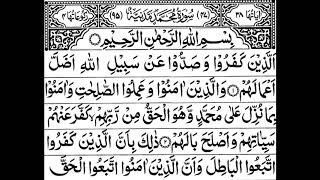 اٰیَاتُهَا ۳۸ (۴۷) سُوْرَةُ مُحَمَّدٍ مَدَنِیَّةٌ (۹۵) رُكُوْعَاتُهَا ۴
بِسْمِ اللّٰهِ الرَّحْمٰنِ الرَّحِیْمِ
اَلَّذِیْنَ كَفَرُوْا وَ صَدُّوْا عَنْ سَبِیْلِ اللّٰهِ اَضَلَّ
اَعْمَالَهُمْ ۝ وَالَّذِیْنَ اٰمَنُوْا وَ عَمِلُوا الصّٰلِحٰتِ وَ اٰمَنُوْا
بِمَا نُزِّلَ عَلٰى مُحَمَّدٍ وَّهُوَ الْحَقُّ مِنْ رَّبِّهِمْ ۙ كَفَّرَ عَنْهُمْ
سَیِّاٰتِهِمْ وَ اَصْلَحَ بَالَهُمْ ۝ ذٰلِكَ بِاَنَّ الَّذِیْنَ كَفَرُوا
اتَّبَعُوا الْبَاطِلَ وَ اَنَّ الَّذِیْنَ اٰمَنُوا اتَّبَعُوا الْحَقَّ